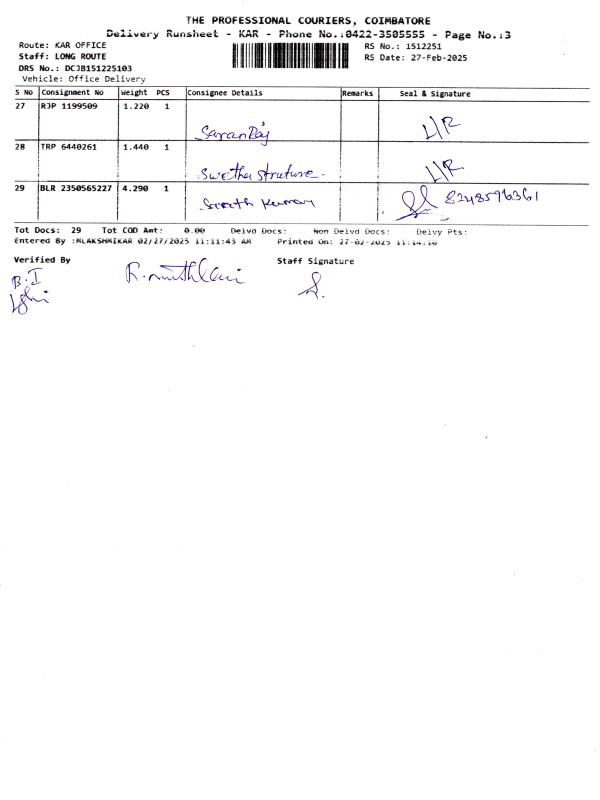 THE PROFESSIONAL COURIERS, COIMBATORE
Delivery Runsheet - KAR - Phone No.:0422-3505555 - Page No.:3
Route: KAR OFFICE
Staff: LONG ROUTE
DRS No.: DCJB151225103
Vehicle: Office Delivery
RS No.: 1512251
RS Date: 27-Feb-2025
S No Consignment No Weight PCS Consignee Details Remarks Seal & Signature
27 RJP 1199509 1.220 1 SaranRaj L/R
28 TRP 6440261 1.440 1 Swetha struture L/R
29 BLR 2350565227 4.290 1 8248596361
Tot Docs: 29 Tot COD Amt: 0.00 Delvd Docs: Non Delvd Docs: Delvy Pts:
Entered By :MLAKSHMIKAR 02/27/2025 11:11:43 AM Printed On: 27-02-2025 11:14:16
Verified By
Staff Signature
B.I